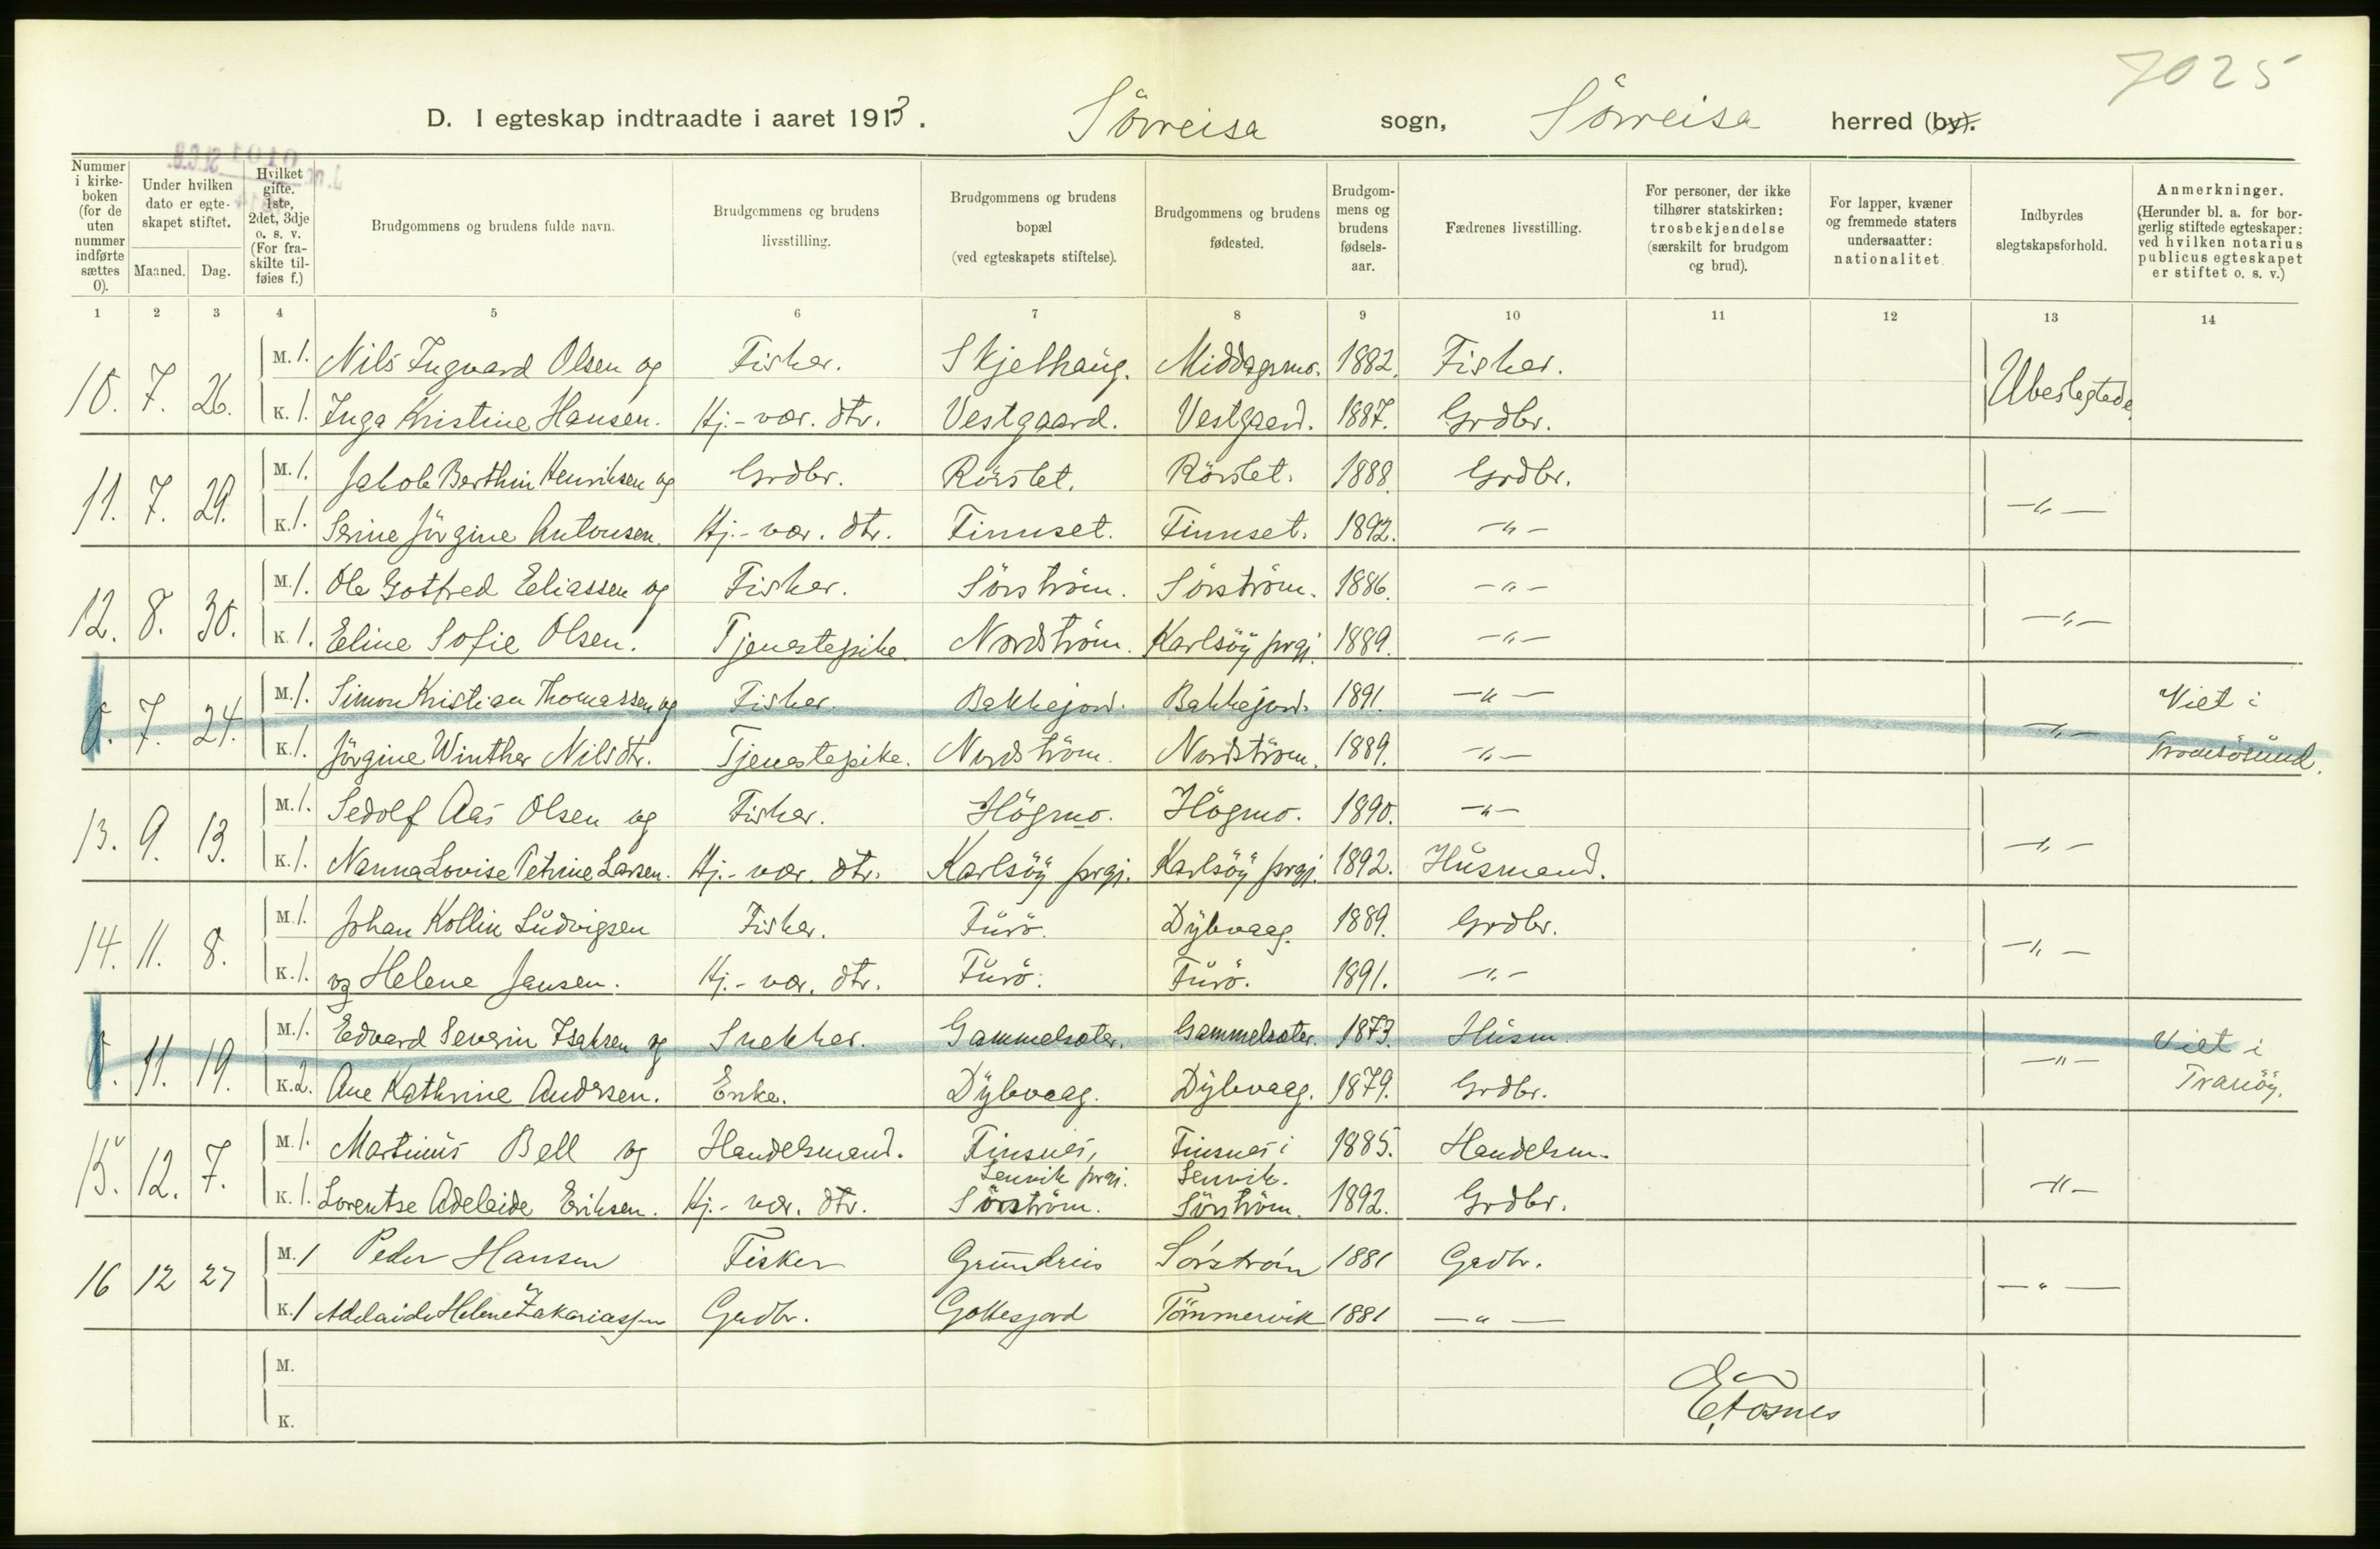 7025
D. I egteskap indtraadte i aaret 1913. Sörreisa sogn, Sörreisa herred (by).
Nummer i kirkeboken (for de uten nummer indførte sættes 0). Under hvilken dato er egteskapet stiftet. Maaned. Dag. Hvilket gifte. 1ste, 2det, 3dje o. s. v. (For fraskilte tilføies f.) Brudgommens og brudens fulde navn. Brudgommens og brudens livsstilling. Brudgommens og brudens bopæl (ved egteskapets stiftelse). Brudgommens og brudens fødested. Brudgommens og brudens fødselsaar. Fædrenes livsstilling. For personer, der ikke tilhører statskirken: trosbekjendelse (særskilt for brudgom og brud). For lapper, kvæner og fremmede staters undersaatter: nationalitet. Indbyrdes slegtskapsforhold. Anmerkninger. (Herunder bl. a. for borgerlig stiftede egteskaper: ved hvilken notarius publicus egteskapet er stiftet o. s. v.)
1 2 3 4 5 6 7 8 9 10 11 12 13 14
10. 7. 26. M. 1. Nils Ingvard Olsen og Fisker. Skjelhaug. Middagsmo. 1882. Fisker. Ubeslegtede
K. 1. Inga Kristine Hansen. Hj.-vær. dtr. Vestgaard. Vestgaard. 1887. Grdbr.
11. 7. 29. M. 1. Jakob Berthin Henriksen og Grdbr. Rörslet. Rörslet. 1888. Grdbr. —„—
K. 1. Serine Jörgine Antonsen. Hj.-vær. dtr. Finnset. Finnset. 1892. —„—
12. 8. 30. M. 1. Ole Gotfred Eeliassen og Fisker. Sörström. Sörström. 1886. —„— —„—
K. 1. Eeline Sofie Olsen. Tjenestepike. Nordström. Karlsöy prgj. 1889. —„—
0. 7. 24. M. 1. Simon Kristian Thomassen og Fisker. Bakkejord. Bakkejord. 1891. —„— —„— Viet i
K. 1. Jörgine Winther Nilsdtr. Tjenestepike. Nordström. Nordström. 1889. —„— Tromsösund.
13. 9. 13. M. 1. Sedolf Aas Olsen og Fisker. Högmo. Högmo. 1890. —„— —„—
K. 1. Nanna Lovise Petrine Larsen. Hj.-vær. dtr. Karlsöy prgj. Karlsöy prgj. 1892. Husmand.
14. 11. 8. M. 1. Johan Kollin Ludvigsen Fisker. Furö. Dybvaag. 1889. Grdbr. —„—
K. 1. og Helene Jansen. Hj.-vær. dtr. Furö. Furö. 1891. —„—
0. 11. 19. M. 1. Eedvard Severin Isaksen og Snekker. Gammelsæter. Gammelsæter. 1873. Husm. —„— Viet i
K. 2. Ane Kathrine Andersen. Enke. Dybvaag. Dybvaag. 1879. Grdbr. Tranöy.
15. 12. 7. M. 1. Martinus Bell og Handelsmand. Finsnes, Finsnes i 1885. Handelsm. —„—
Lenvik prgj. Lenvik.
K. 1. Lorentse Adeleide Eriksen. Hj.-vær. dtr. Sörström. Sörström. 1892. Grdbr.
16 12 27 M. 1 Peder Hansen Fisker Grundreis Sörström 1881 Gadbr. —„—
K. 1 Adelaide Helene Zakariassen Gadbr. Gottesjord Tömmervik 1881 —„—
M.
K.